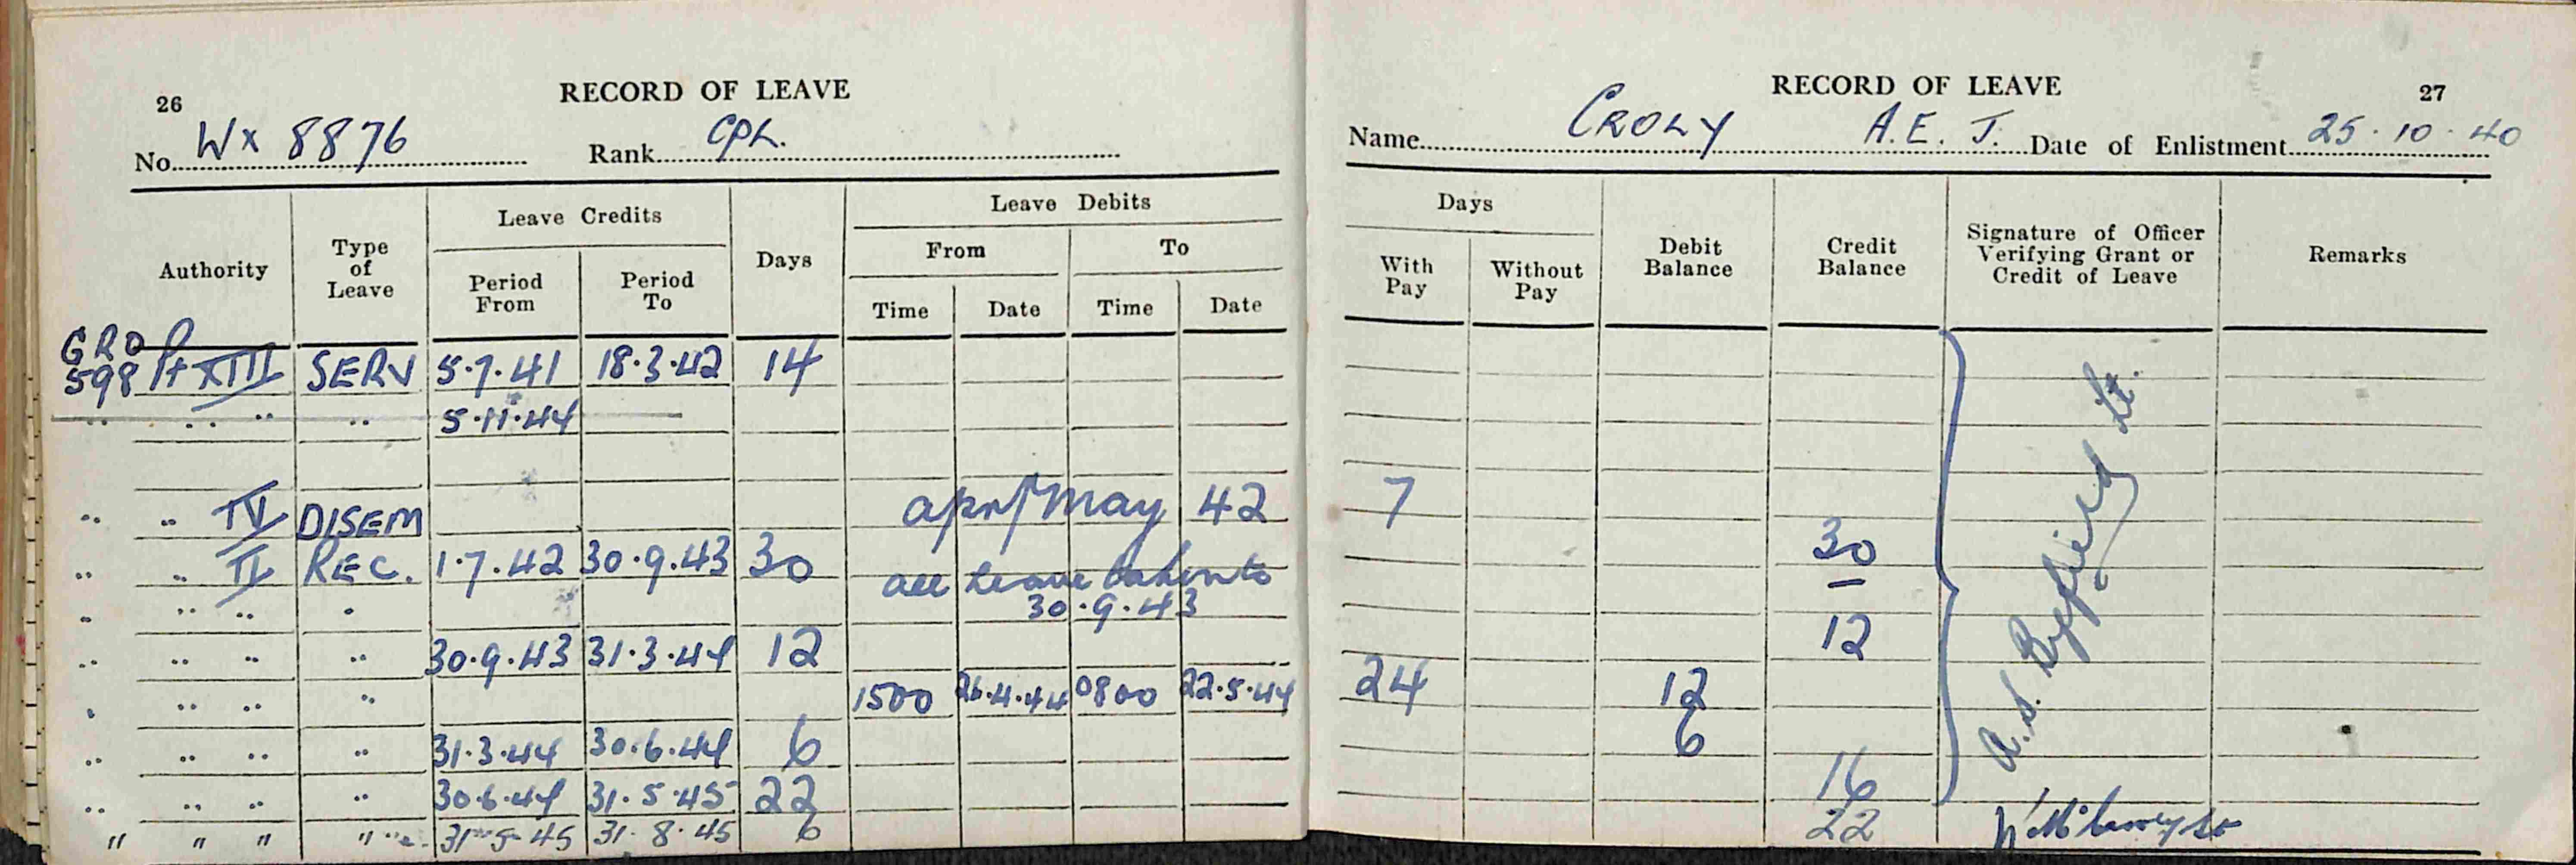 26
RECORD OF LEAVE
No. WX 8876 Rank CPL.
Authority
Type of Leave
Leave Credits
Period From
Period To
Days
Leave Debits
From
To
Time
Date
Time
Date
GRO
598 Pt XIII SERV 5.7.41 18.3.42 14
" " " " 5.11.44
" " IV DISEM april/may 42
" " II REC. 1.7.42 30.9.43 30 all leave taken to
" " " " 30.9.43
" " " " 30.9.43 31.3.44 12
" " " " 1500 26.4.44 0800 22.5.44
" " " " 31.3.44 30.6.44 6
" " " " 30.6.44 31.5.45 22
" " " " 31.5.45 31.8.45 6
RECORD OF LEAVE
27
Name CROLY A.E.J. Date of Enlistment 25.10.40
Days
With Pay
Without Pay
Debit Balance
Credit Balance
Signature of Officer
Verifying Grant or
Credit of Leave
Remarks
7
30
12
24 12
6
16
22
A.S. Lt.